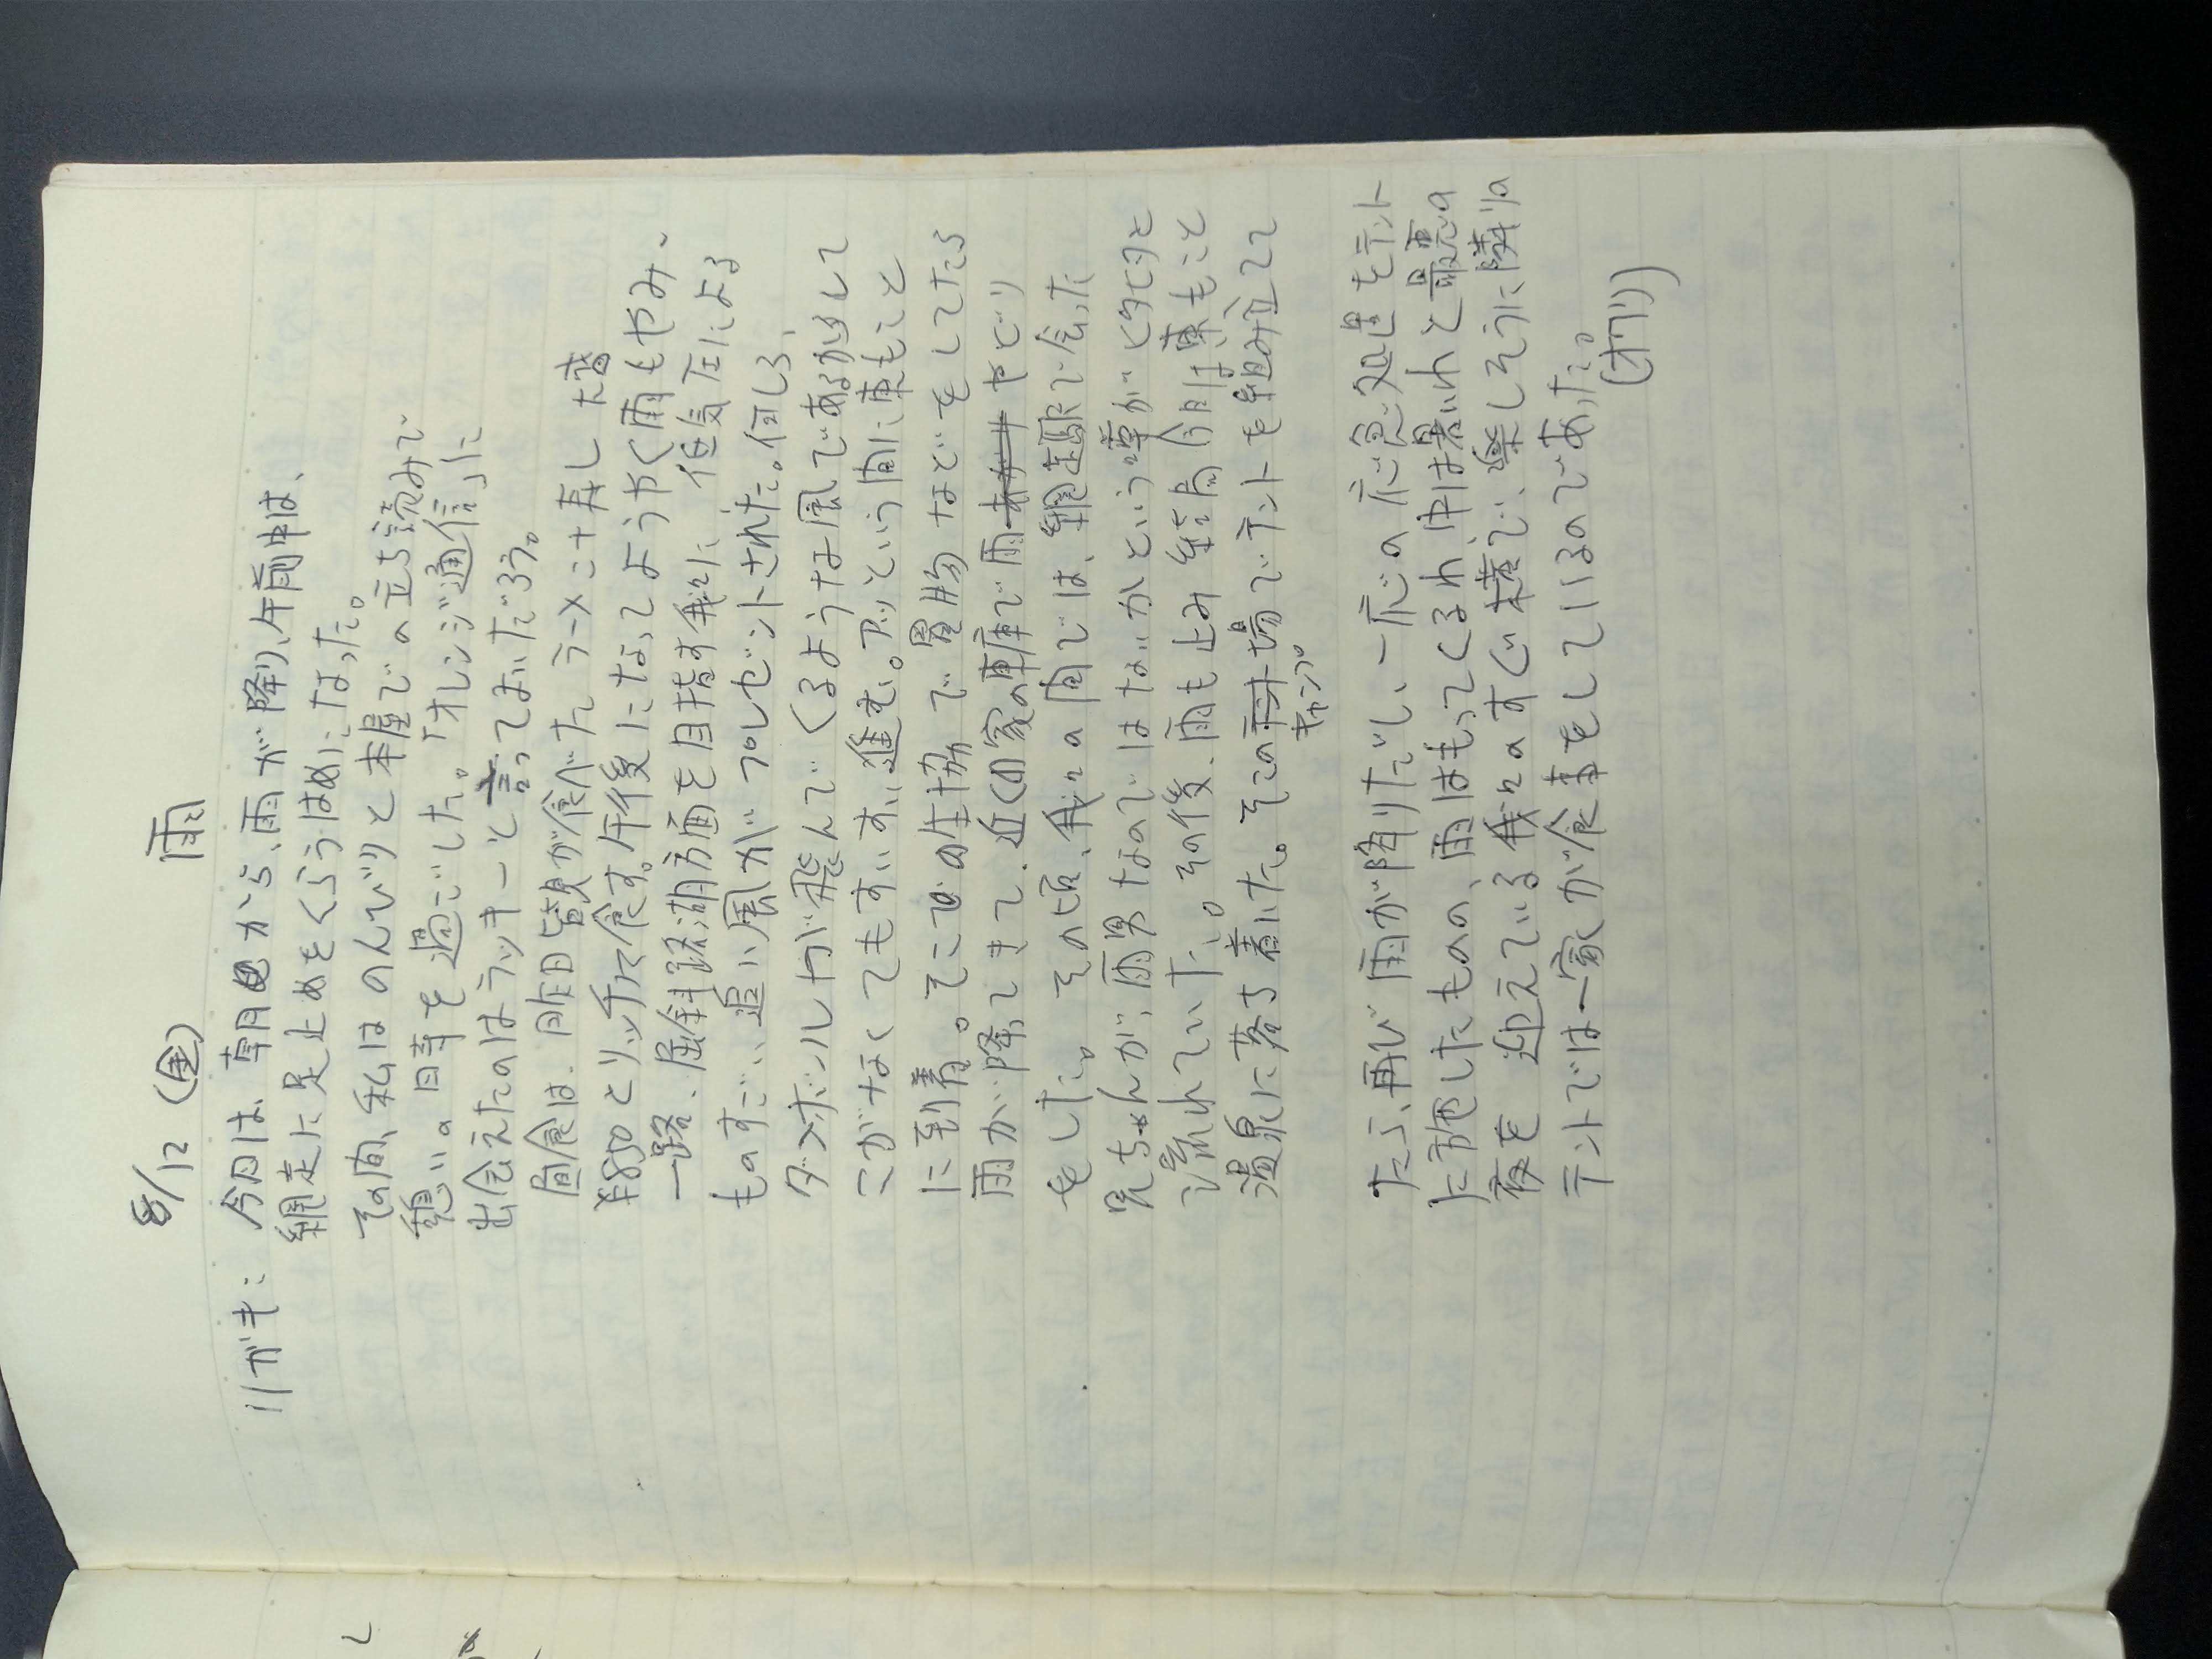 8/12 (金) 雨
ハガキ: 今日は、朝から、雨が降り、午前中は、
網走に足止めをくらうはめになった。
その間、私はのんびりと本屋での立ち読みで
憩いの時を過ごした。「オレンジ通信」に
出会えたのはラッキーと言ってよいだろう。
昼食は、昨日皆が食べたラーメン+寿し 大盛
¥850とリッチに食す。午後になってようやく雨もやみ、
一路、屈斜路湖方面を目指す我々に 低気圧による
ものすごい追い風がプレゼントされた。何しろ、
ダンボールが飛んでくるような風であるからして
こがなくてもすいすい進む。アッという間に東もこと
に到着。そこでの生協で買物などをしてたら
雨が降ってきて、近くの家の車庫で雨やどり
をした。その頃、我々の間では、網走駅で会った
兄ちゃんが、雨男なのではないかという噂がヒタヒタと
流れていた。その後、雨も止み 結局今日は東もこと
温泉に落ち着いた。そのキャンプ場でテントを組み立てて
たら、再び雨が降りだし、一応の応急処置をテント
に施したものの、雨はもってくるわ 中は暑いわと最悪の
夜を迎えている我々のすぐ横で、楽しそうに隣りの
テントでは一家が食事をしているのであった。
(オワリ)
し